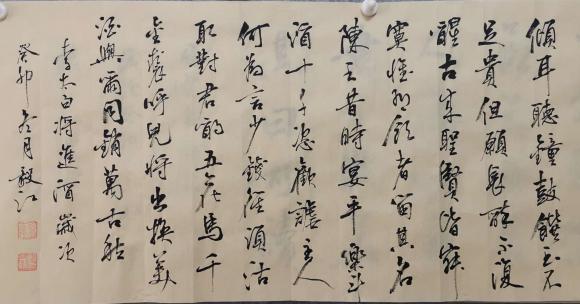 傾耳聽鐘鼓饌玉不
足貴但願長醉不復
醒古來聖賢皆寂
寞惟有飲者留其名
陳王昔時宴平樂斗
酒十千恣歡謔主人
何為言少錢徑須沽
取對君酌五花馬千
金裘呼兒將出換美
酒與爾同銷萬古愁
李太白將進酒歲次
癸卯冬月